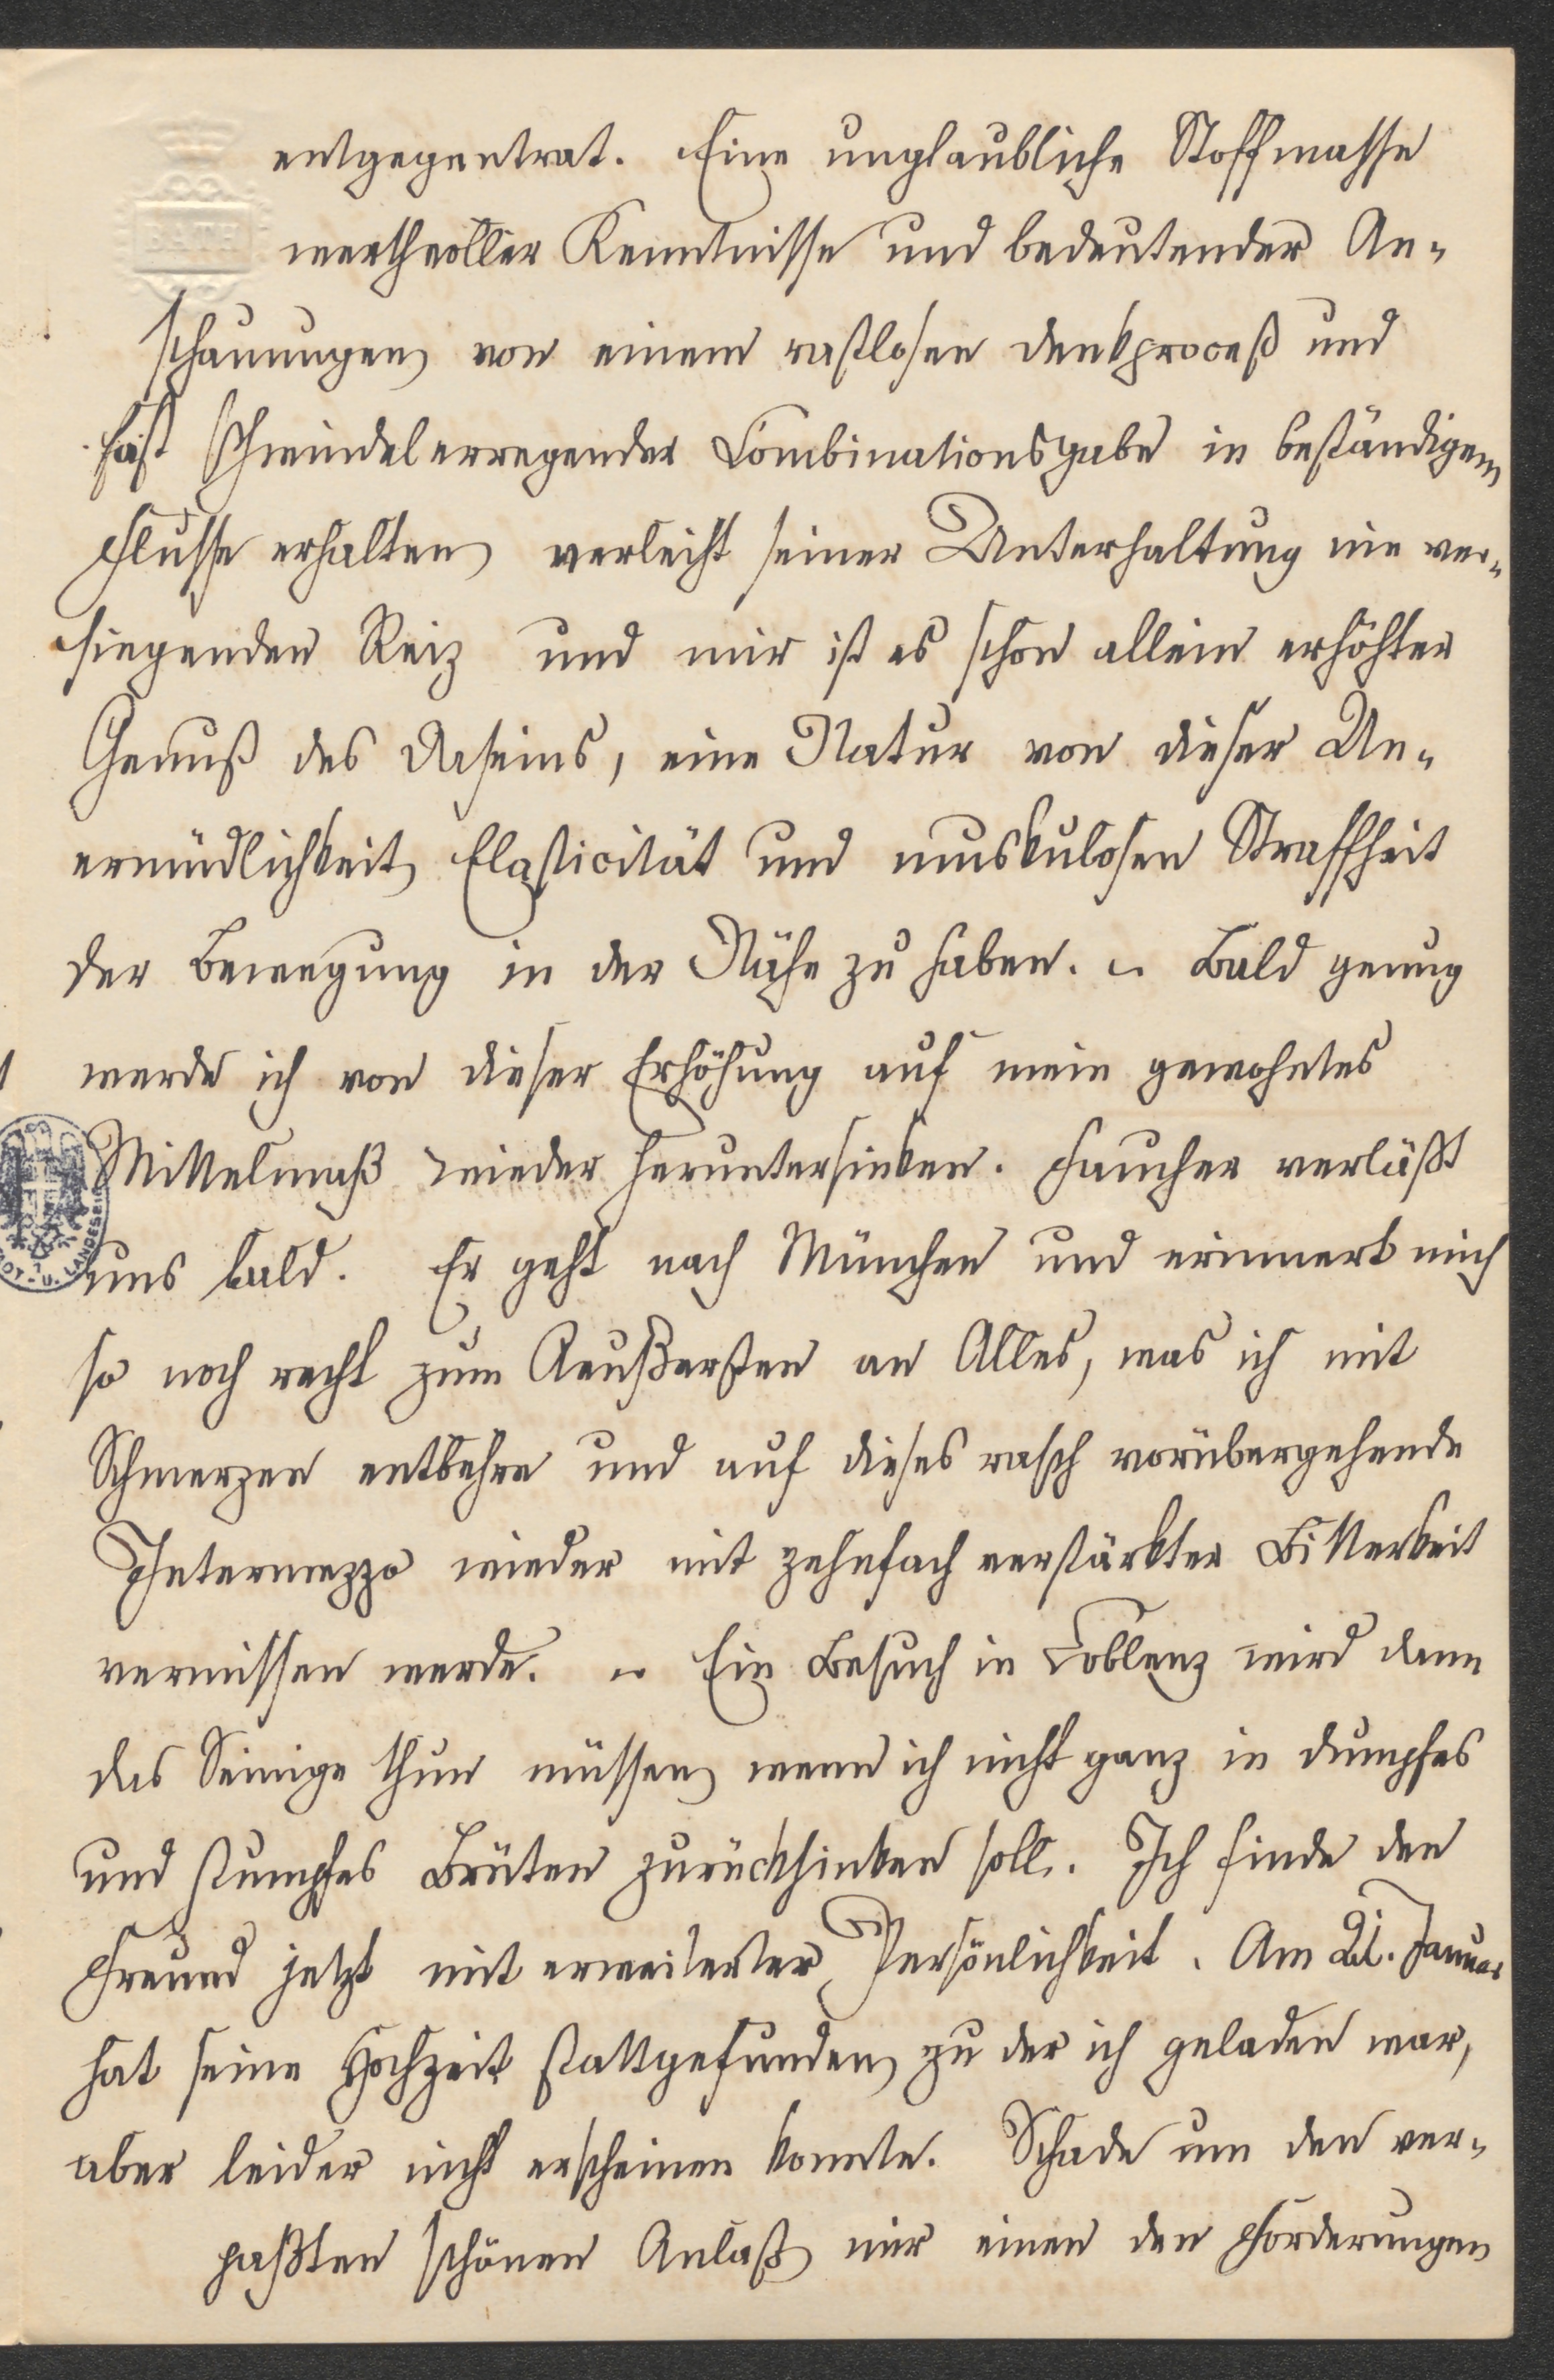 entgegentrat. Eine unglaubliche Stoffmasse
werthvoller Kenntnisse und bedeutender An-
schauungen von einem rastlosen Denkproceß und
fast schwindelerregender Combinationsgabe in beständigem
Flusse erhalten verleiht seiner Unterhaltung nie ver-
siegenden Reiz und mir ist es schon allein erhöhter
Genuß des Daseins, eine Natur von dieser Un-
ermüdlichkeit, Elasticität und muskulosen Straffheit
der Bewegung in der Nähe zu haben. – Bald genug
werde ich von dieser Erhöhung auf mein gewohntes
Mittelmaß wieder heruntersinken. Faucher verläßt
uns bald. Er geht nach München und erinnert mich
so noch recht zum Aeußersten an Alles, was ich mit
Schmerzen entbehre und auf dieses rasch vorübergehende
Intermezzo wieder mit zehnfach verstärkter Bitterkeit
vermissen werde. – Ein Besuch in Coblenz wird dann
das Seinige thun müssen, wenn ich nicht ganz in dumpfes
und stumpfes Brüten zurücksinken soll. Ich finde den
Freund jetzt mit erweiterter Persönlichkeit. Am Januar
hat seine Hochzeit stattgefunden, zu der ich geladen war,
aber leider nicht erscheinen konnte. Schade um den ver-
paßten schönen Anlaß, mir einen den Forderungen